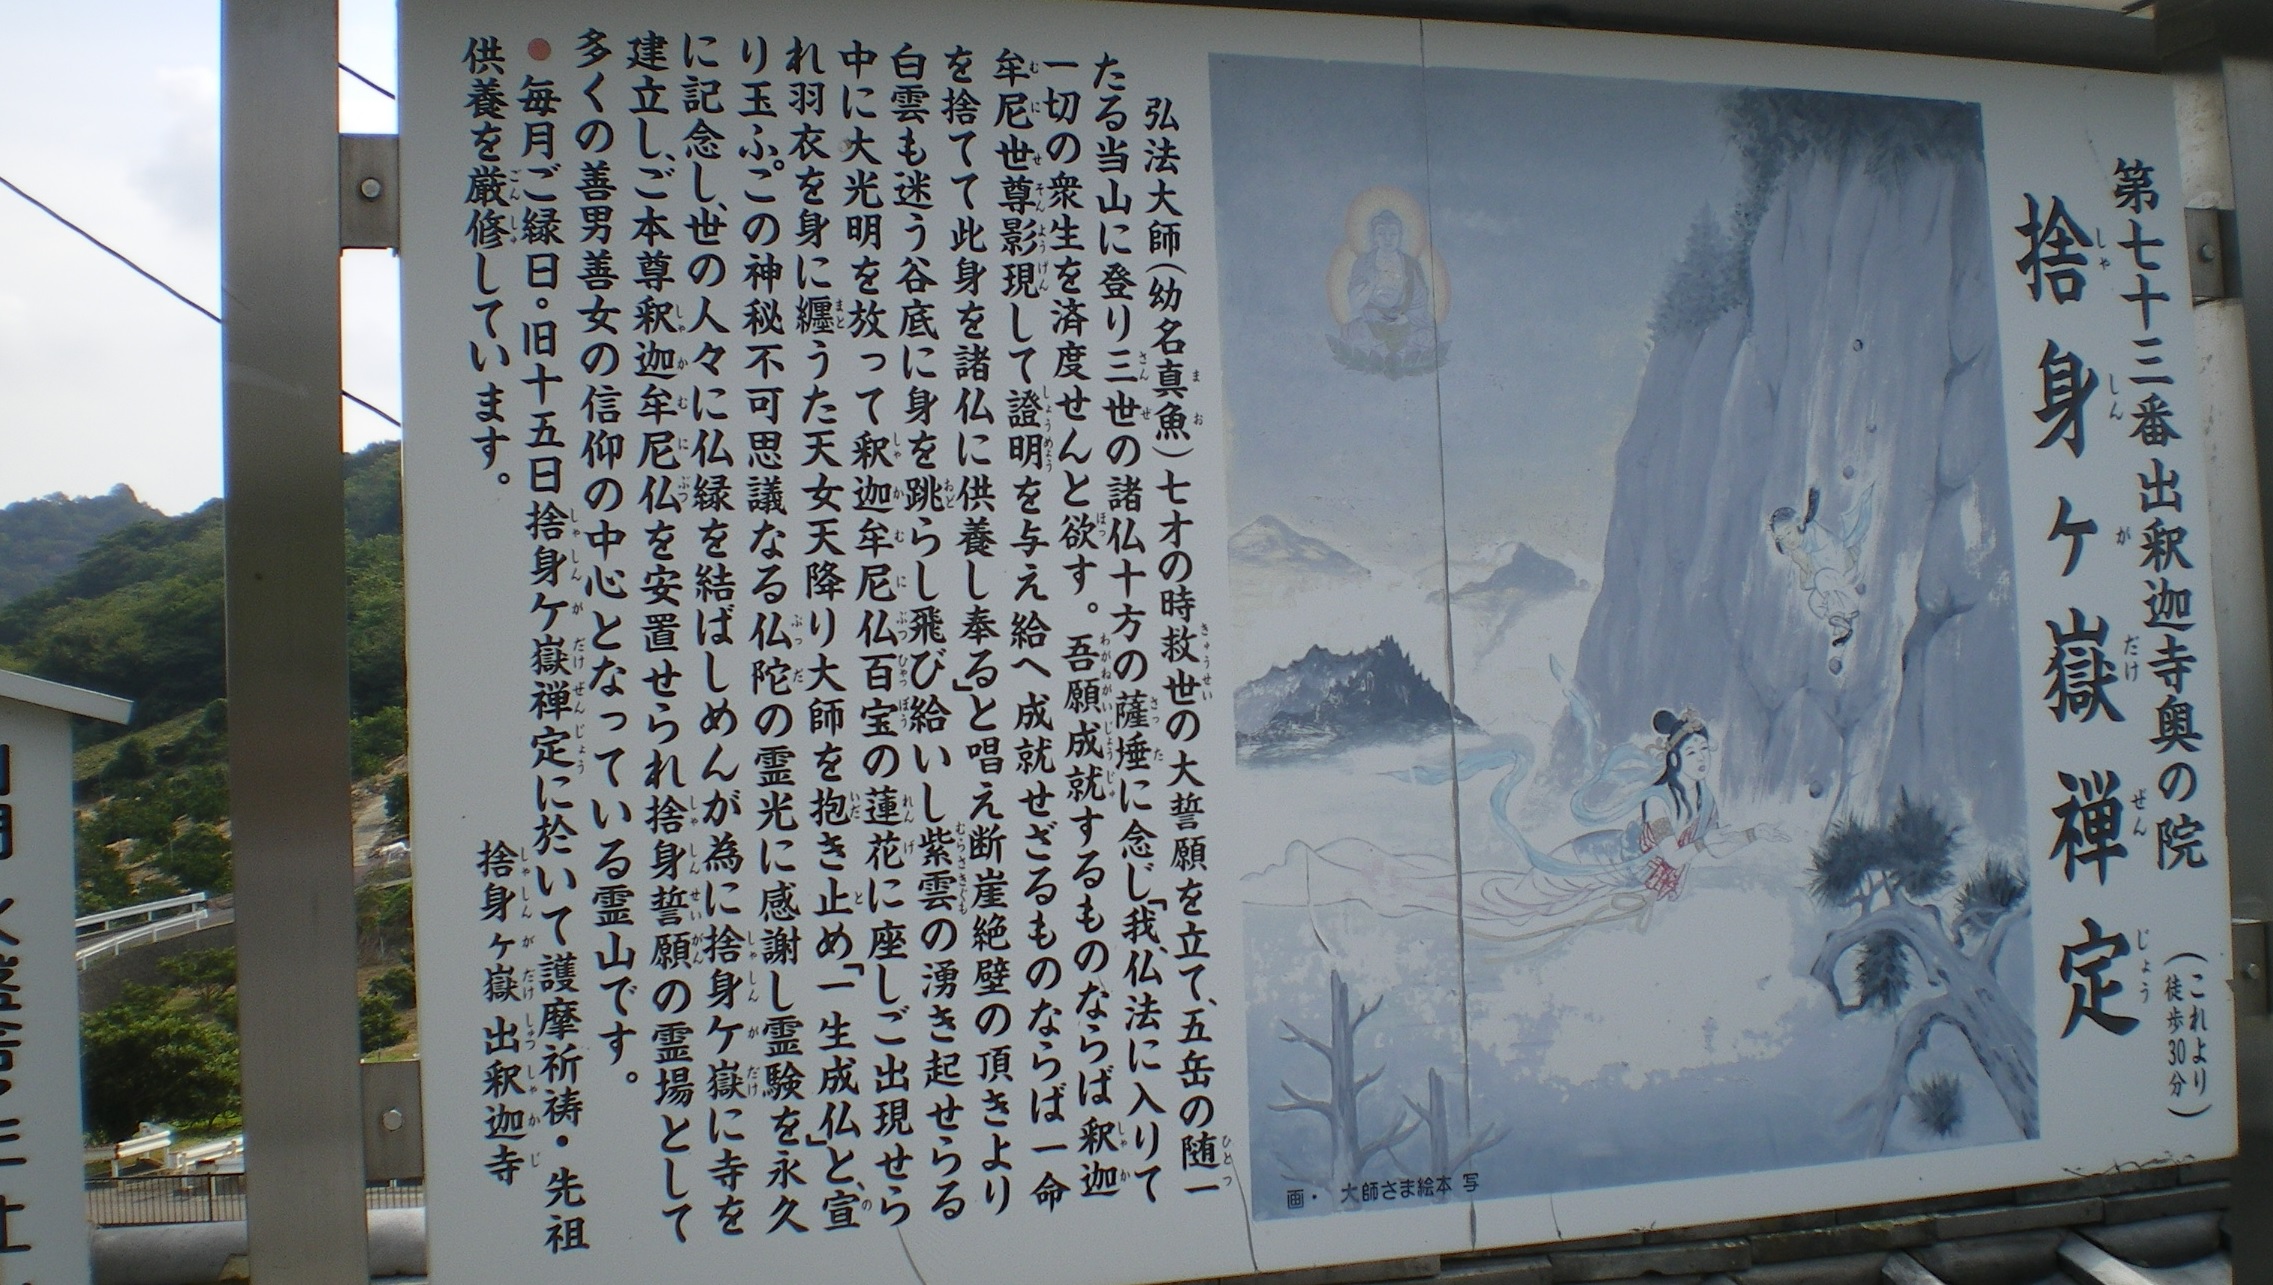 第七十三番出釈迦寺奥の院
(これより
徒歩30分)
捨身ケ嶽禅定
しゃしんがだけぜんじょう
弘法大師(幼名真魚)七才の時救世の大誓願を立て、五岳の随一
たる当山に登り三世の諸仏十方の薩埵に念じ「我、仏法に入りて
一切の衆生を済度せんと欲す。吾願成就するものならば釈迦
牟尼世尊影現して證明を与え給へ成就せざるものならば一命
を捨てて此身を諸仏に供養し奉る」と唱え断崖絶壁の頂きより
白雲も迷う谷底に身を跳らし飛び給いし紫雲の湧き起せらる
中に大光明を放って釈迦牟尼仏百宝の蓮花に座しご出現せら
れ羽衣を身に纒うた天女天降り大師を抱き止め「一生成仏」と、宣
り玉ふ。この神秘不可思議なる仏陀の霊光に感謝し霊験を永久
に記念し、世の人々に仏縁を結ばしめんが為に捨身ケ嶽に寺を
建立し、ご本尊釈迦牟尼仏を安置せられ捨身誓願の霊場として
多くの善男善女の信仰の中心となっている霊山です。
●毎月ご縁日。旧十五日捨身ケ嶽禅定に於いて護摩祈祷・先祖
供養を厳修しています。
捨身ヶ嶽 出釈迦寺
画・ 大師さま絵本 写